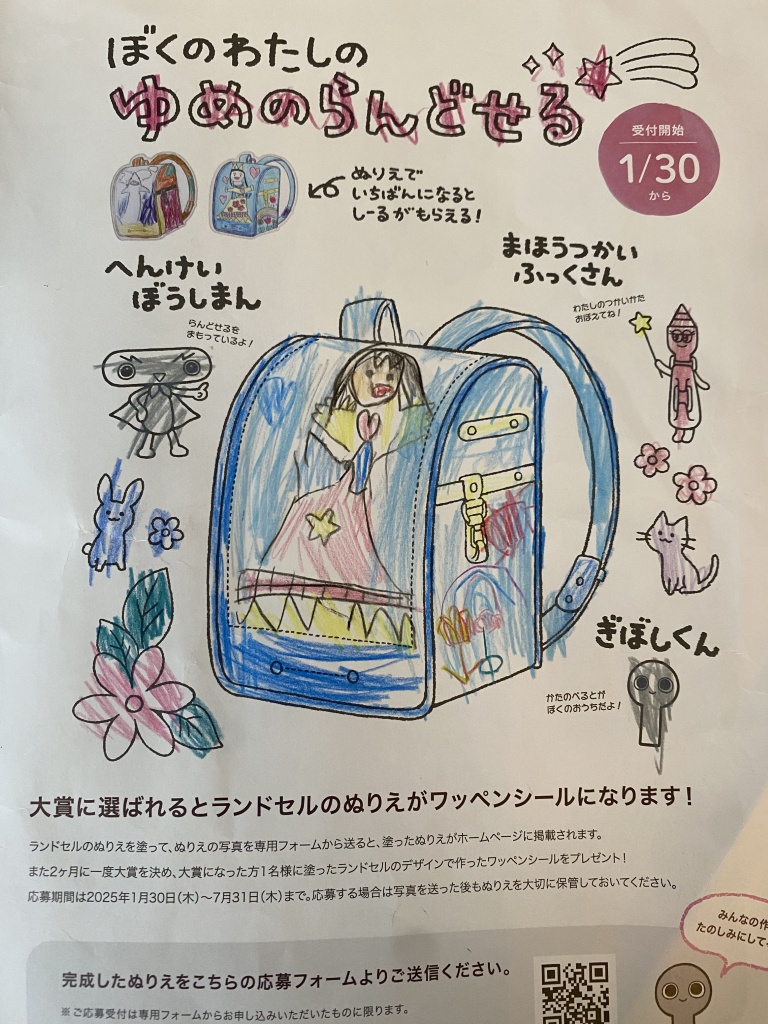 ぼくのわたしの
ゆめのらんどせる
受付開始
1/30
から
ぬりえで
いちばんになると
しーるがもらえる!
へんけい
ぼうしまん
らんどせるを
まもっているよ!
まほうつかい
ふっくさん
わたしのつかいかた
おぼえてね!
ぎぼしくん
かたのべるとが
ぼくのおうちだよ!
大賞に選ばれるとランドセルのぬりえがワッペンシールになります!
ランドセルのぬりえを塗って、ぬりえの写真を専用フォームから送ると、塗ったぬりえがホームページに掲載されます。
また2ヶ月に一度大賞を決め、大賞になった方1名様に塗ったランドセルのデザインで作ったワッペンシールをプレゼント!
応募期間は2025年1月30日(木)〜7月31日(木)まで。応募する場合は写真を送った後もぬりえを大切に保管しておいてください。
みんなの作
たのしみにして
完成したぬりえをこちらの応募フォームよりご送信ください。
※ご応募受付は専用フォームからお申し込みいただいたものに限ります。